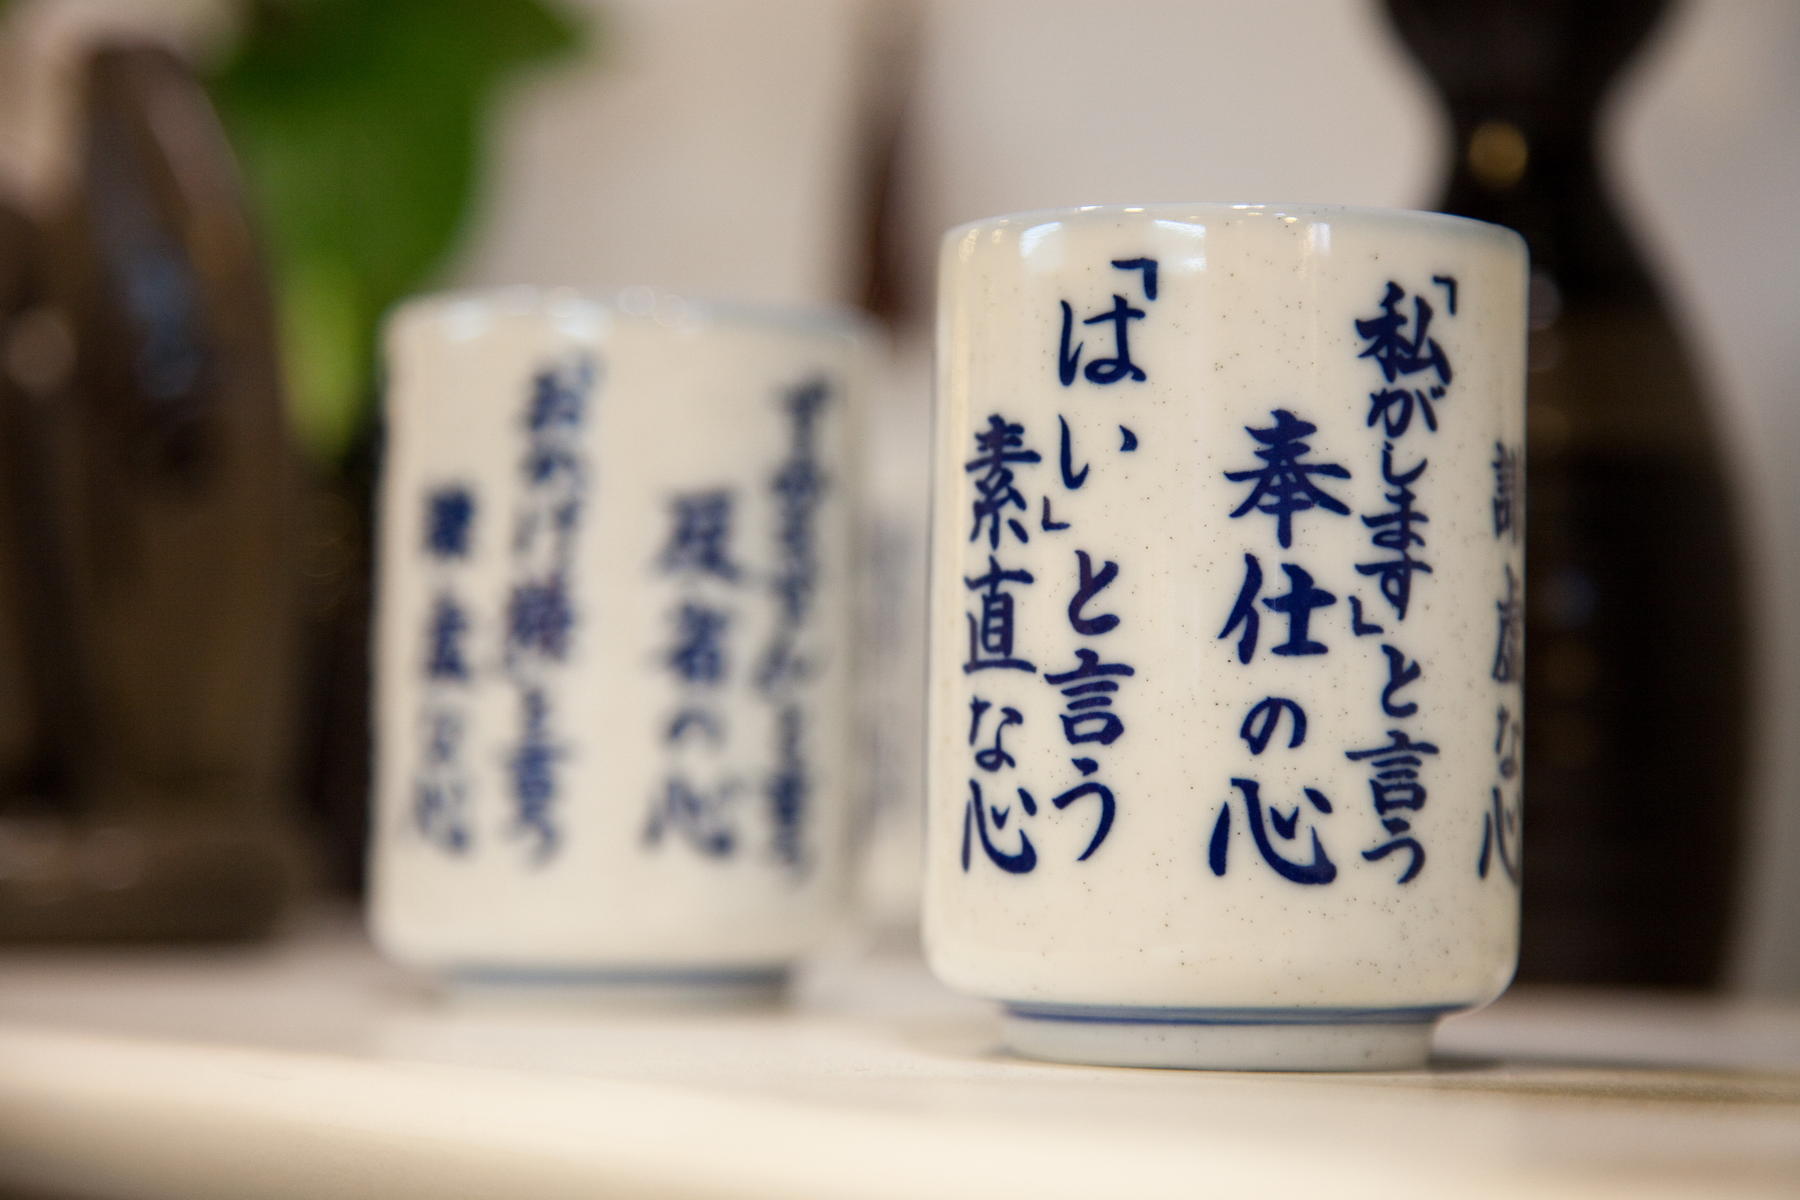 「私がします」と言う
奉仕の心
「はい」と言う
素直な心
「すみません」と言う
反省の心
「おかげ様」と言う
謙虚な心